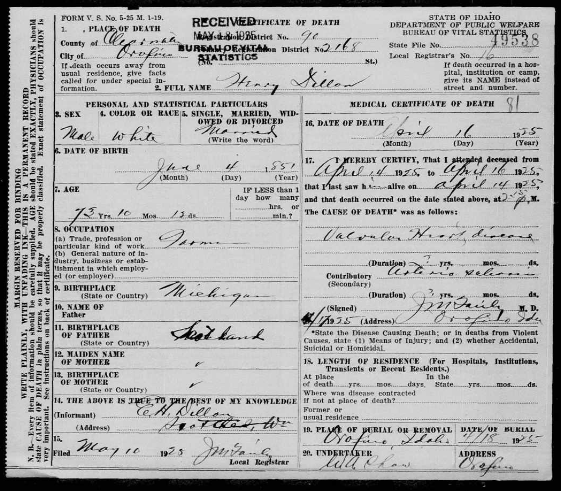 FORM V. S. No. 5-25 M. 1-19.
RECEIVED
MAY 1925
BUREAU OF VITAL
STATISTICS
CERTIFICATE OF DEATH
STATE OF IDAHO
DEPARTMENT OF PUBLIC WELFARE
BUREAU OF VITAL STATISTICS
1. PLACE OF DEATH
County of Clearwater
City of Orofino
Registration District No. 90
Registration District No. 2168
(No. St.)
State File No. 49538
Local Registrar's No. 16
If death occurs away from
usual residence, give facts
called for under special in-
formation.
If death occurred in a
hospital, institution or camp,
give its NAME instead of
street and number.
2. FULL NAME Henry Dillon
81
PERSONAL AND STATISTICAL PARTICULARS
3. SEX 4. COLOR OR RACE 5. SINGLE, MARRIED, WID-
OWED OR DIVORCED
Male White Married
(Write the word)
6. DATE OF BIRTH
June 4 1851
(Month) (Day) (Year)
7. AGE
73 Yrs. 10 Mos. 12 ds.
IF LESS than 1
day how many
hrs. or
min.?
8. OCCUPATION
(a) Trade, profession or
particular kind of work
(b) General nature of in-
dustry, business or estab-
lishment in which employ-
ed (or employer)
Farmer
9. BIRTHPLACE
(State or Country)
Michigan
10. NAME OF
Father
11. BIRTHPLACE
OF FATHER
(State or Country)
Scotland
12. MAIDEN NAME
OF MOTHER
13. BIRTHPLACE
OF MOTHER
(State or Country)
14. THE ABOVE IS TRUE TO THE BEST OF MY KNOWLEDGE
(Informant) C. H. Dillon
(Address)
15.
Filed May 10 1925
Local Registrar
MEDICAL CERTIFICATE OF DEATH
16. DATE OF DEATH
April 16 1925
(Month) (Day) (Year)
17. I HEREBY CERTIFY, That I attended deceased from
April 14 1925 to April 16 1925,
that I last saw h alive on April 14 1925,
and that death occurred on the date stated above, at M.
The CAUSE OF DEATH* was as follows:
Valvular Heart disease
(Duration) ? yrs. mos. ds.
Contributory Arterio sclerosis
(Secondary)
(Duration) ? yrs. mos. ds.
(Signed) M. D.
1925 (Address) Orofino Ida
*State the Disease Causing Death; or in deaths from Violent
Causes, state (1) Means of Injury; and (2) whether Accidental,
Suicidal or Homicidal.
18. LENGTH OF RESIDENCE (For Hospitals, Institutions,
Transients or Recent Residents.)
At place In the
of death yrs. mos. days, State yrs. mos. ds.
Where was disease contracted
if not at place of death?
Former or
usual residence
19. PLACE OF BURIAL OR REMOVAL DATE OF BURIAL
Orofino Idaho 4/18 1925
20. UNDERTAKER ADDRESS
Orofino
MARGIN RESERVED FOR BINDING
WRITE PLAINLY, WITH UNFADING INK—THIS IS A PERMANENT RECORD
N. B.—Every item of information should be carefully supplied. AGE should be stated EXACTLY, PHYSICIANS should
state CAUSE OF DEATH in plain terms, so that it may be properly classified. Exact statement of OCCUPATION is
very important. See instructions on back of certificate.